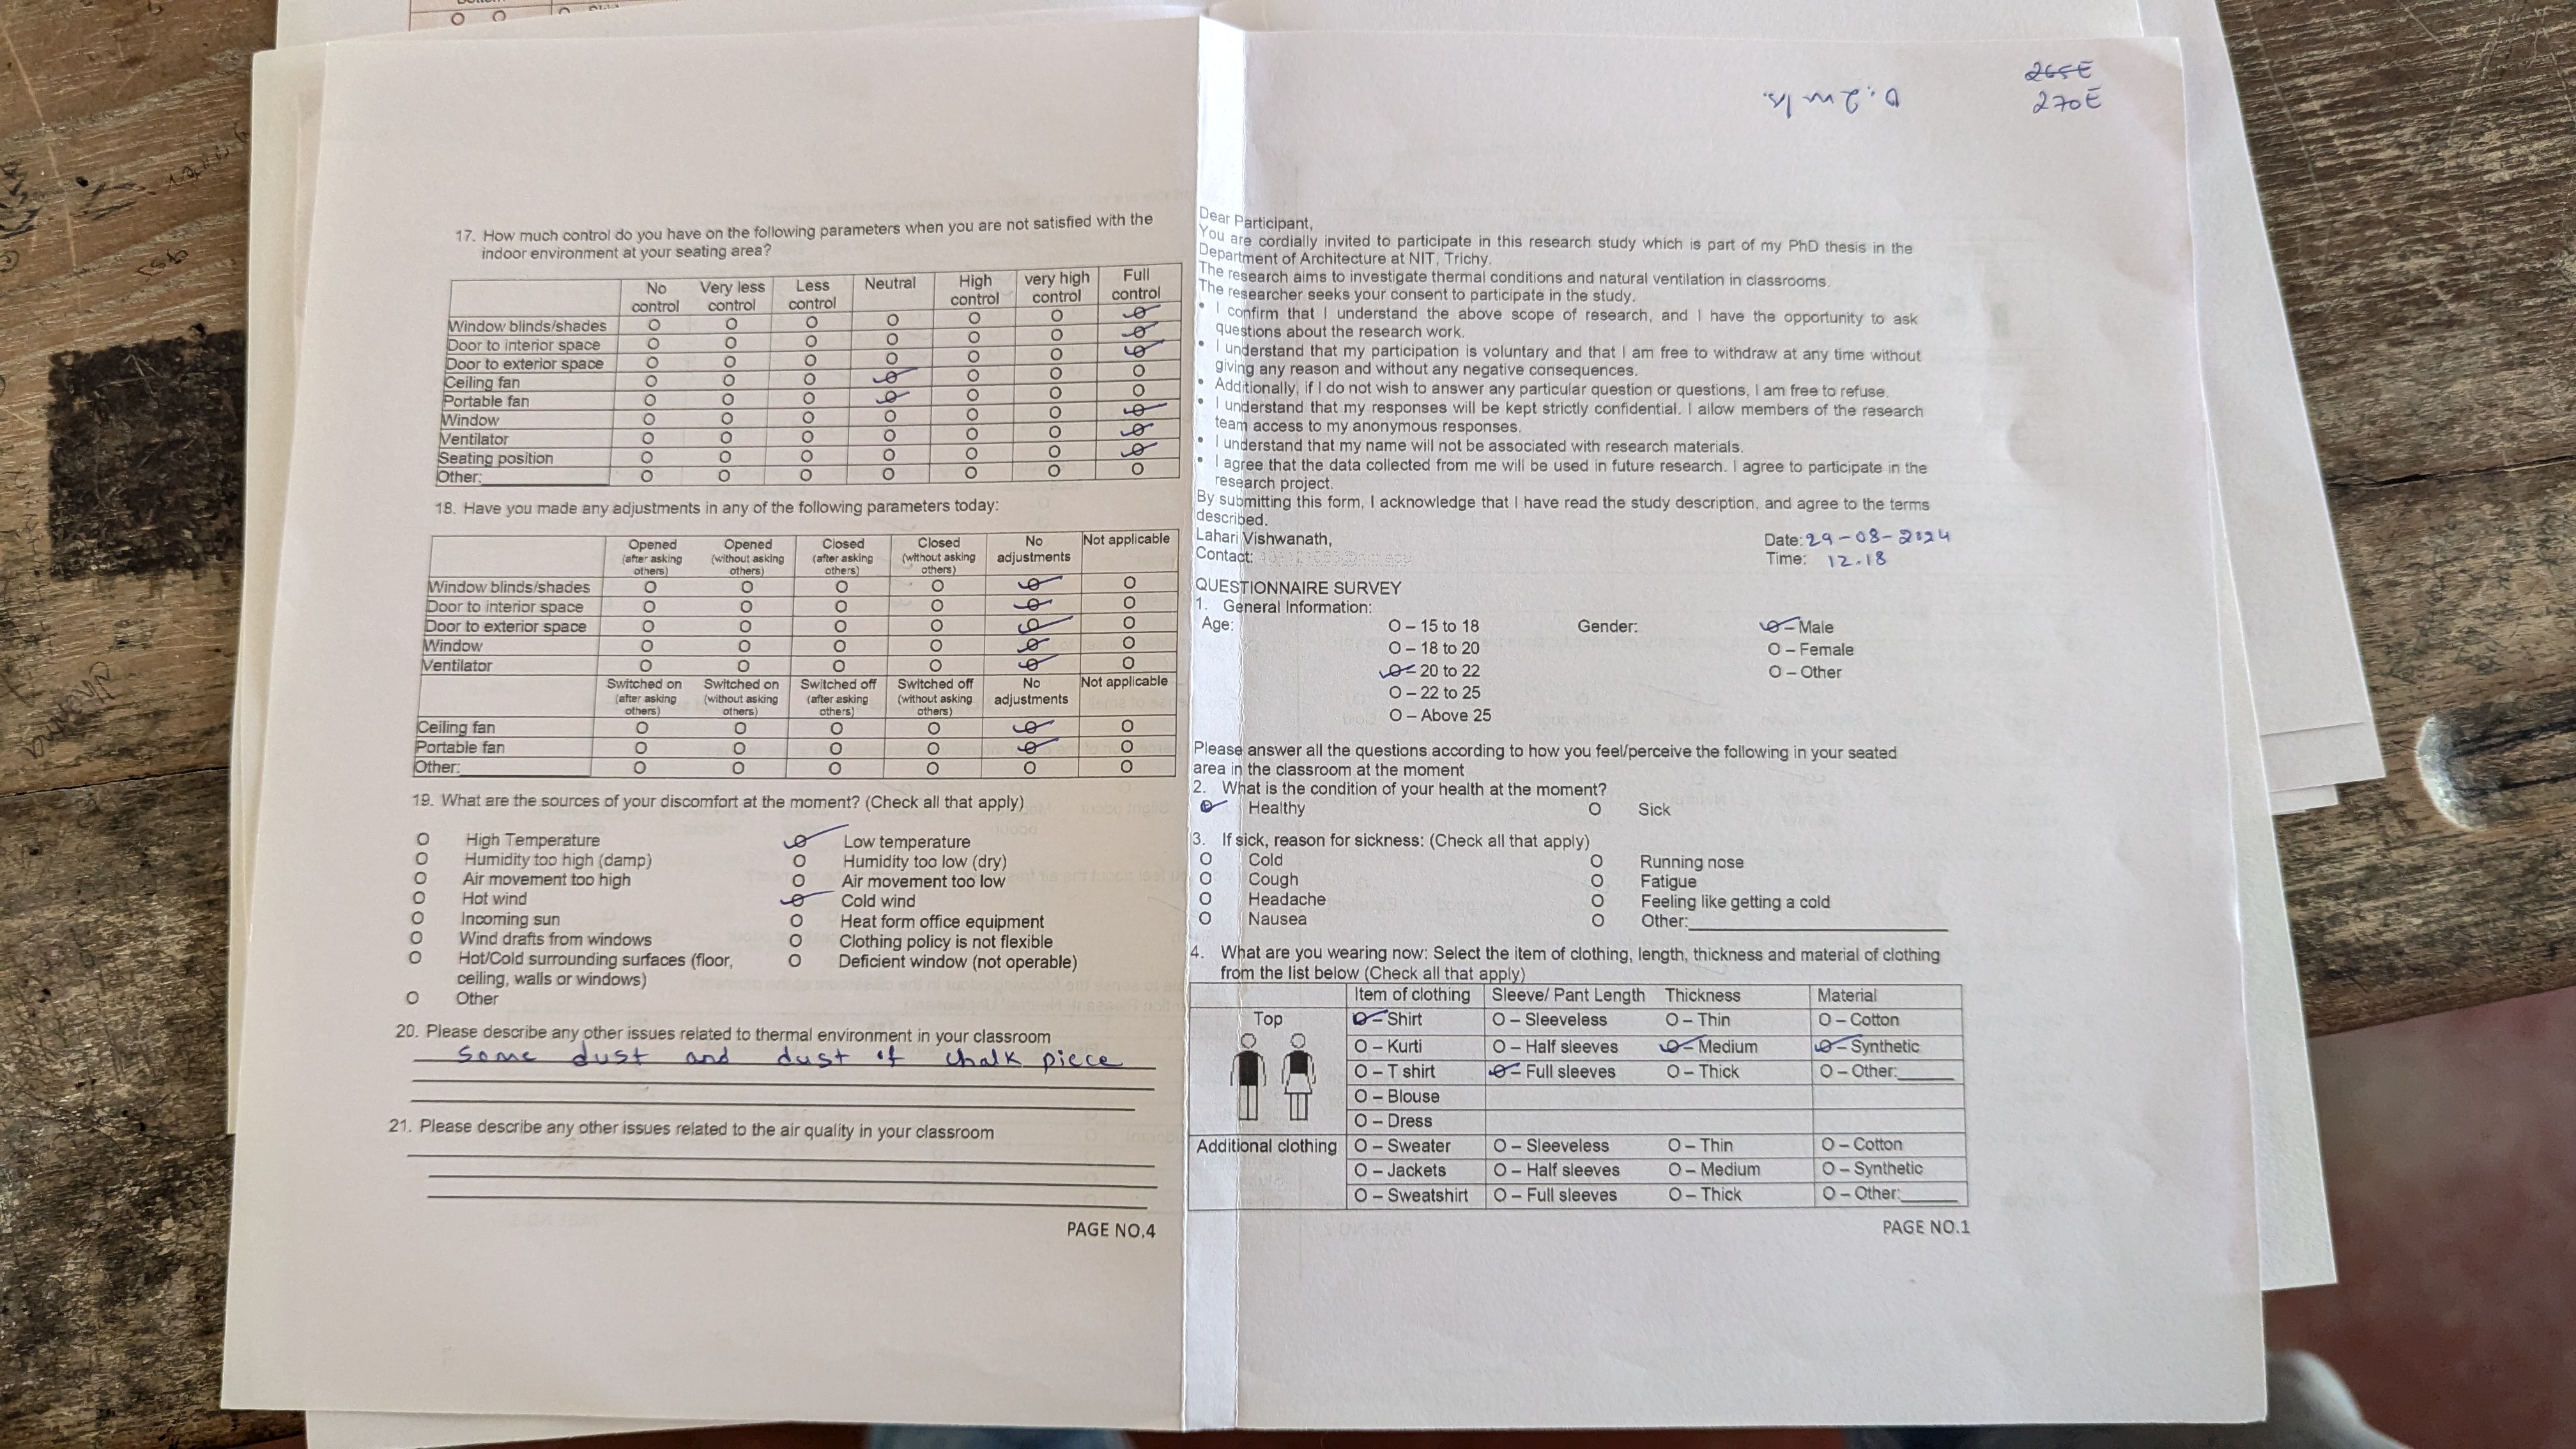 17. How much control do you have on the following parameters when you are not satisfied with the
indoor environment at your seating area?
No control Very less control Less control Neutral High control very high control Full control
Window blinds/shades O O O O O O O
Door to interior space O O O O O O O
Door to exterior space O O O O O O O
Ceiling fan O O O O O O O
Portable fan O O O O O O O
Window O O O O O O O
Ventilator O O O O O O O
Seating position O O O O O O O
Other:________ O O O O O O O
18. Have you made any adjustments in any of the following parameters today:
Opened (after asking others) Opened (without asking others) Closed (after asking others) Closed (without asking others) No adjustments Not applicable
Window blinds/shades O O O O O O
Door to interior space O O O O O O
Door to exterior space O O O O O O
Window O O O O O O
Ventilator O O O O O O
Switched on (after asking others) Switched on (without asking others) Switched off (after asking others) Switched off (without asking others) No adjustments Not applicable
Ceiling fan O O O O O O
Portable fan O O O O O O
Other:________ O O O O O O
19. What are the sources of your discomfort at the moment? (Check all that apply)
O High Temperature O Low temperature
O Humidity too high (damp) O Humidity too low (dry)
O Air movement too high O Air movement too low
O Hot wind O Cold wind
O Incoming sun O Heat form office equipment
O Wind drafts from windows O Clothing policy is not flexible
O Hot/Cold surrounding surfaces (floor, O Deficient window (not operable)
ceiling, walls or windows)
O Other
20. Please describe any other issues related to thermal environment in your classroom
Some dust and dust of chalk piece
21. Please describe any other issues related to the air quality in your classroom
PAGE NO.4
265E
270E
0.2m/s.
Dear Participant,
You are cordially invited to participate in this research study which is part of my PhD thesis in the
Department of Architecture at NIT, Trichy.
The research aims to investigate thermal conditions and natural ventilation in classrooms.
The researcher seeks your consent to participate in the study.
• I confirm that I understand the above scope of research, and I have the opportunity to ask
questions about the research work.
• I understand that my participation is voluntary and that I am free to withdraw at any time without
giving any reason and without any negative consequences.
• Additionally, if I do not wish to answer any particular question or questions, I am free to refuse.
• I understand that my responses will be kept strictly confidential. I allow members of the research
team access to my anonymous responses.
• I understand that my name will not be associated with research materials.
• I agree that the data collected from me will be used in future research. I agree to participate in the
research project.
By submitting this form, I acknowledge that I have read the study description, and agree to the terms
described.
Lahari Vishwanath, Date: 29-08-2024
Contact: Time: 12.18
QUESTIONNAIRE SURVEY
1. General Information:
Age: O – 15 to 18 Gender: O – Male
O – 18 to 20 O – Female
O – 20 to 22 O – Other
O – 22 to 25
O – Above 25
Please answer all the questions according to how you feel/perceive the following in your seated
area in the classroom at the moment
2. What is the condition of your health at the moment?
O Healthy O Sick
3. If sick, reason for sickness: (Check all that apply)
O Cold O Running nose
O Cough O Fatigue
O Headache O Feeling like getting a cold
O Nausea O Other:________
4. What are you wearing now: Select the item of clothing, length, thickness and material of clothing
from the list below (Check all that apply)
Item of clothing Sleeve/ Pant Length Thickness Material
Top O – Shirt O – Sleeveless O – Thin O – Cotton
O – Kurti O – Half sleeves O – Medium O – Synthetic
O – T shirt O – Full sleeves O – Thick O – Other:______
O – Blouse
O – Dress
Additional clothing O – Sweater O – Sleeveless O – Thin O – Cotton
O – Jackets O – Half sleeves O – Medium O – Synthetic
O – Sweatshirt O – Full sleeves O – Thick O – Other:______
PAGE NO.1